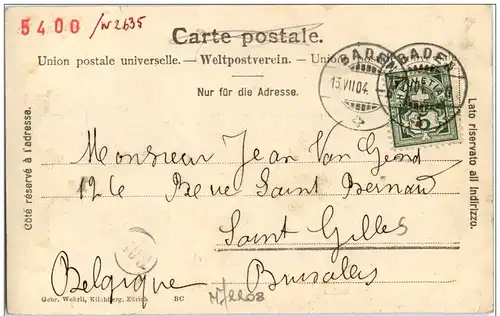 5400 / N 2635
Carte postale.
Union postale universelle. — Weltpostverein. — Union
Nur für die Adresse.
BADEN
13.VII.04.
BADEN
5
Côté réservé à l'adresse.
Lato riservato all indirizzo.
Monsieur Jean Van Gend
126 Rue Saint Bernard
Saint Gilles
Belgique Bruxelles
Gebr. Wehrli, Kilchberg, Zürich BC